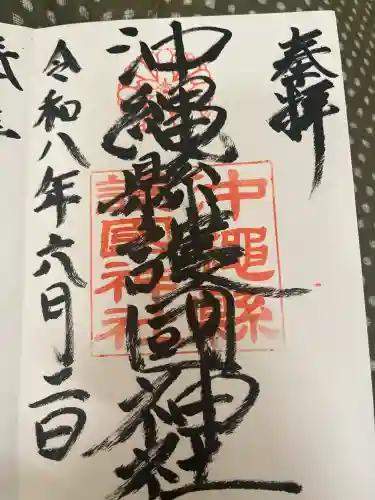 奉拝
沖縄縣護国神社
沖縄縣
護國神社
令和八年六月二日